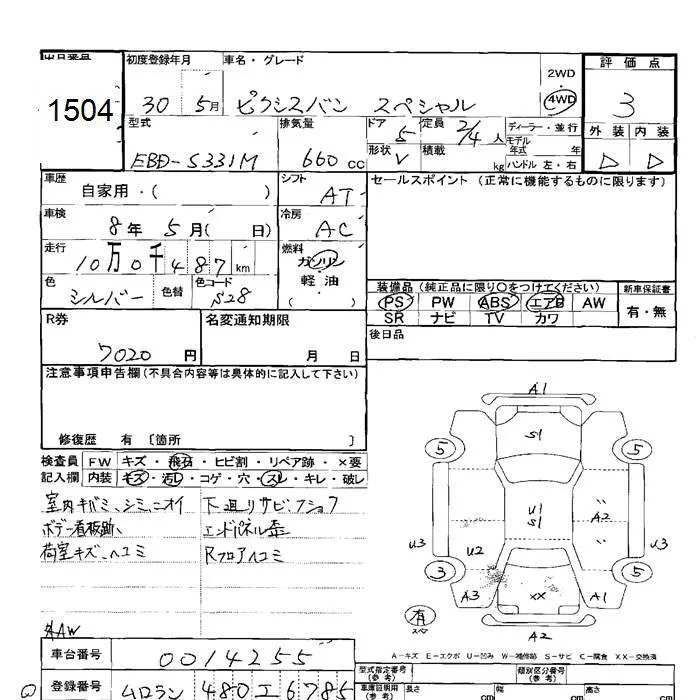 出品番号 初度登録年月 車名・グレード 評価点
1504 30 5月 ピクシスバン スペシャル 2WD 4WD 3
型式 排気量 ドア 5 定員 2/4人 ディーラー・並行 外装 内装
EBD-S331M 660cc 形状 V 積載 kg モデル年式 年 ハンドル 左・右 D D
車歴 自家用・( ) シフト AT セールスポイント (正常に機能するものに限ります)
車検 8年 5月( 日) 冷房 AC
走行 10万0千487km 燃料 ガソリン
色 シルバー 色替 色コード S28 軽油 ( )
装備品 (純正品に限り○をつけてください) 新車保証書
PS PW ABS エアB AW 有・無
SR ナビ TV カワ
R券 7020円 名変通知期限 月 日 後日品
注意事項申告欄 (不具合内容等は具体的に記入して下さい)
修復歴 有 〔箇所 〕
検査員 FW キズ・飛石・ヒビ割・リペア跡・×要
記入欄 内装 キズ・汚レ・コゲ・穴・スレ・キレ・破レ
室内キバミ、シミ、ニオイ 下廻リサビ、フショク
ボデー看板跡、 エンドパネル歪
荷室キズ、ヘコミ Rフロアヘコミ
AAW
A1
S1
5 5
U1
S1
A2
U3 U2 U3
3 5
A3 XX A1
有
スペア
A2
A-キズ E-エクボ U-凹み W-補修跡 S-サビ C-腐食 XX-交換済
車台番号 0014255
型式指定番号 (参考) 類別区分番号 (参考)
登録番号 ムロラン 480 エ 6785
車庫証明用 (参考) 長さ cm 幅 cm 高さ cm